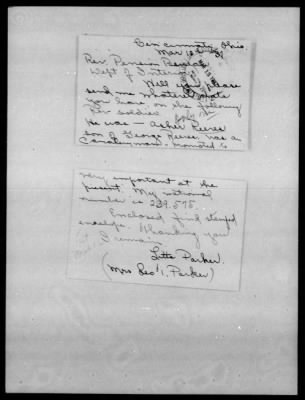 Cincinnati, Ohio.
Mar 12
Rev. Pension Records
Dept of Interior
Will you please
send me whatever data
you have, on the following
Rev soldier.
He was — Asher Reeves
son of George Reeves, was a
Cavalry man. Mounted &
very important at the
present. My national
number is 239.575.
Enclosed find stamped
envelope. Thanking you
I remain
Litta Parker.
(Mrs Geo. T. Parker)